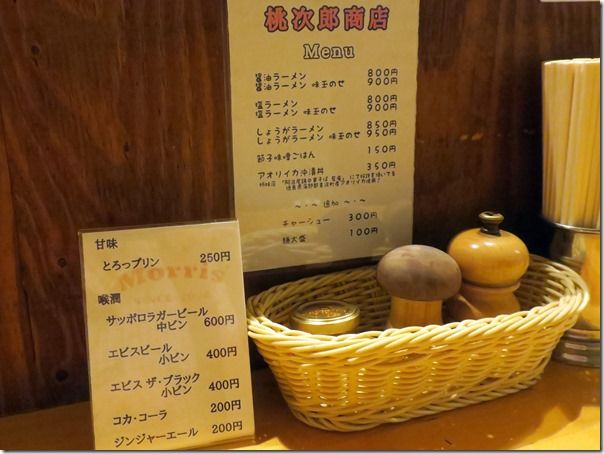 桃次郎商店
Menu
醤油ラーメン 800円
醤油ラーメン 味玉のせ 900円
塩ラーメン 800円
塩ラーメン 味玉のせ 900円
しょうがラーメン 850円
しょうがラーメン 味玉のせ 950円
節子味噌ごはん 150円
アオリイカ沖漬丼 350円
～・～ 追加 ～・～
チャーシュー 300円
麺大盛 100円
甘味
とろっプリン 250円
Morris
喉潤
サッポロラガービール
中ビン 600円
エビスビール
小ビン 400円
エビス ザ・ブラック
小ビン 400円
コカ・コーラ 200円
ジンジャーエール 200円